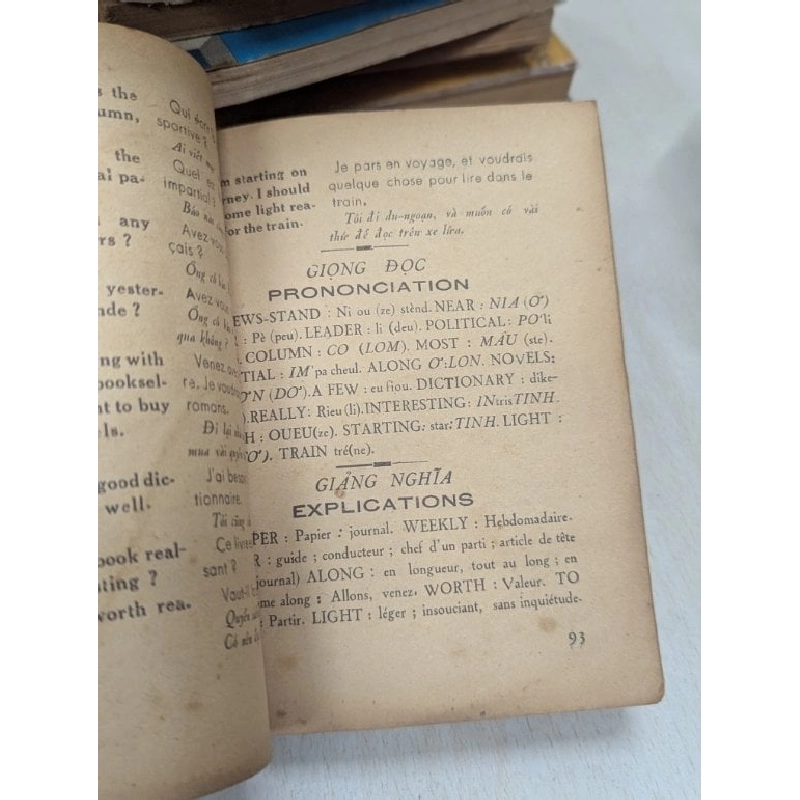 s the
umn,
the
al pa-
any
rs ?
yester-
ade ?
ng with
booksel-
t to buy
ls.
good dic-
well.
book real-
ting ?
worth rea.
sportive ?
Ai viết
Quel
impartial ?
Báo nào
Avez vous
çais ?
Ông có
Avez-vous
Ông có
qua không ?
Venez avec
re, Je voudrais
romans.
Đi lại
mua vài quyển
J'ai besoin
tionnaire.
Tôi cũng
Ce livre
sant ?
Vaut-il
Quyển
Có nên
m starting on
rney. I should
ome light rea-
for the train.
Je pars en voyage, et voudrais
quelque chose pour lire dans le
train.
Tôi đi du-ngoạn, và muốn có vài
thứ để đọc trên xe lửa.
GIỌNG ĐỌC
PRONONCIATION
EWS-STAND : Ni ou (ze) stènd. NEAR : NIA (Ơ)
: Pè (peu). LEADER : li (deu). POLITICAL : PO'li
. COLUMN : CO (LOM). MOST : MÂU (ste).
TIAL : IM pa cheul. ALONG Ơ:LON. NOVELS:
Ơ'N (DƠ'). A FEW : eu fiou. DICTIONARY : dike-
). REALLY: Rieu (li). INTERESTING: INtris TINH.
H : OUEU(ze). STARTING: star: TINH. LIGHT :
Ơ'). TRAIN tré(ne).
GIẢNG NGHĨA
EXPLICATIONS
PER : Papier : journal. WEEKLY : Hebdomadaire.
R : guide ; conducteur ; chef d'un parti ; article de tête
journal) ALONG : en longueur, tout au long ; en
me along : Allons, venez. WORTH : Valeur. TO
: Partir. LIGHT : léger ; insouciant, sans inquiétude.
93